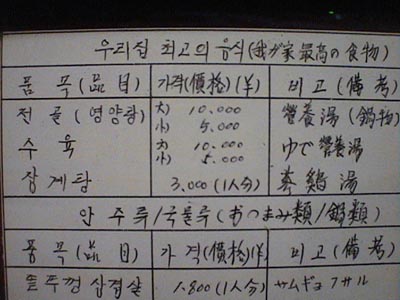 우리집 최고의 음식 (我が家最高の食物)
품 목 (品目) 가격 (價格) (￦) 비고 (備考)
전골 (영양탕) 大) 10.000 營養湯 (鍋物)
小) 5.000
수 육 大) 10.000 ゆで營養湯
小) 5.000
삼계탕 3.000 (1人分) 蔘鷄湯
안주류/국물류 (おつまみ類/鍋類)
품 목 (品目) 가격 (價格) (￦) 비고 (備考)
삼겹살 1.800 (1人分) サムギョプサル